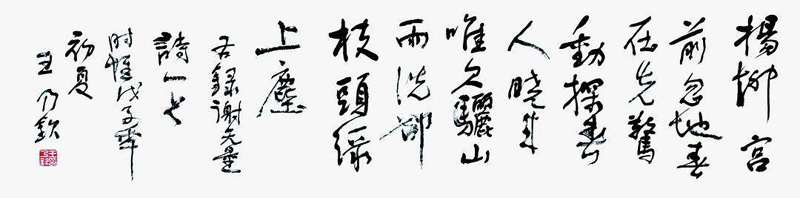 楊柳宮
前忽地春
在先驚
動探春
人曉来
唯欠驪山
雨洗卻
枝頭綠
上塵
右錄謝无量
詩一首
时惟戊子年
初夏
王乃欽